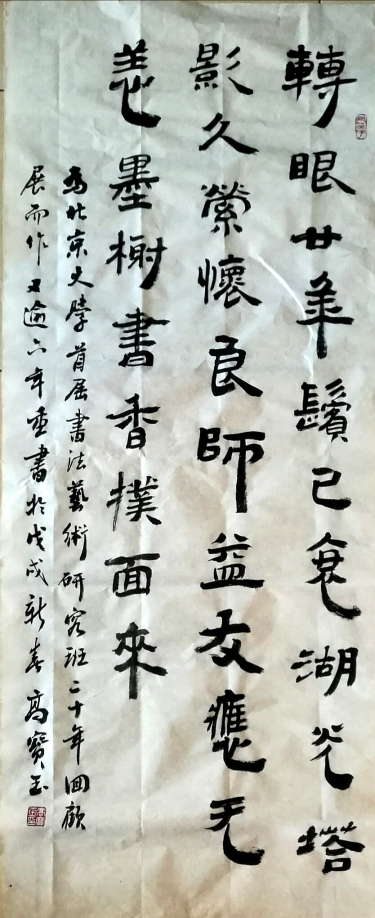 轉眼廿年鬢已衰湖光塔
影久縈懷良師益友應无
恙墨榭書香撲面來
為北京大學首屆書法藝術研究班二十年回顧
展而作又逾六年重書於戊戌新春高寶玉